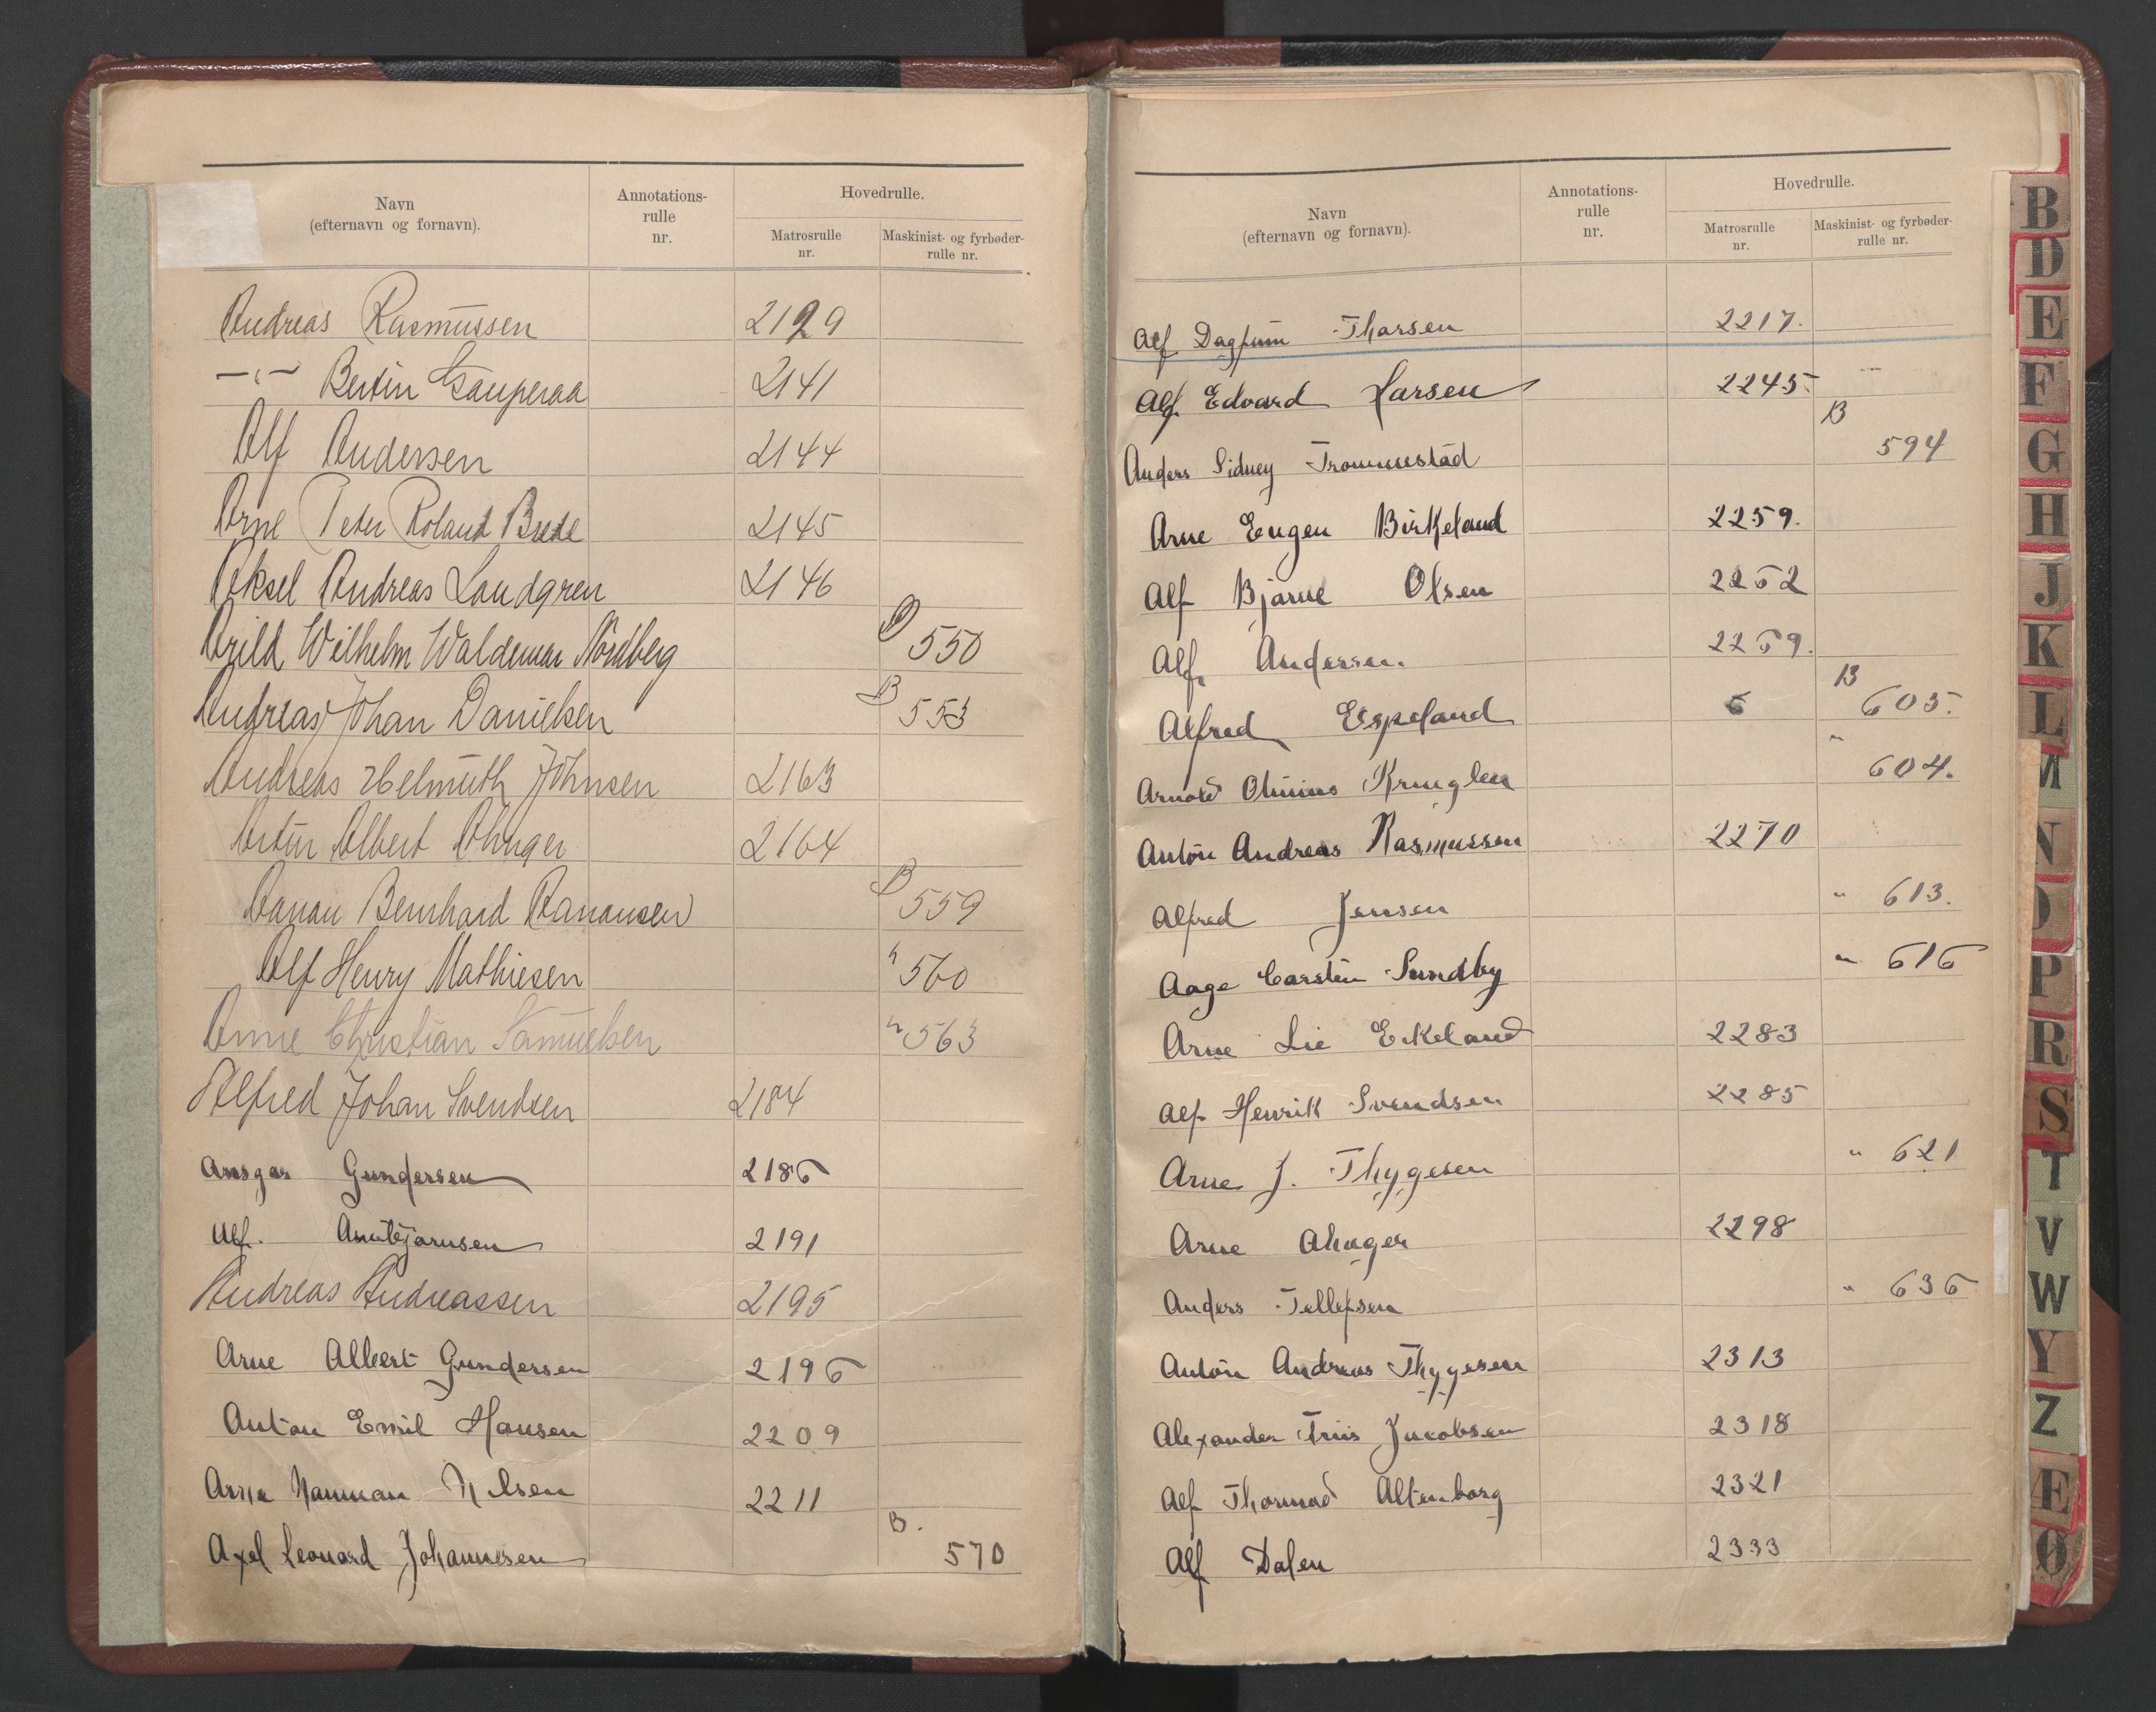 Navn
(efternavn og fornavn).
Annotations-
rulle
nr.
Hovedrulle.
Matrosrulle
nr.
Maskinist- og fyrbøder-
rulle nr.
Andreas Rasmussen 2129
-"- Bertin Gauperaa 2141
Alf Andersen 2144
Arne Peter Roland Brede 2145
Aksel Andreas Landgren 2146
Arild Wilhelm Waldemar Nordberg B 550
Andreas Johan Danielsen B 553
Andreas Helmuth Johnsen 2163
Artur Albert Ahnger 2164
Aanon Bernhard Aanonsen B 559
Alf Henry Mathiesen " 560
Arne Christian Samuelsen " 563
Alfred Johan Svendsen 2184
Ansgar Gundersen 2186
Alf. Arntbjørnsen 2191
Andreas Andreassen 2195
Arne Albert Gundersen 2196
Anton Emil Hansen 2209
Arne Nilsen 2211
Axel Leonard Johannesen B. 570
Navn
(efternavn og fornavn).
Annotations-
rulle
nr.
Hovedrulle.
Matrosrulle
nr.
Maskinist- og fyrbøder-
rulle nr.
Alf Dagfinn Tharsen 2217.
Alf Edvard Larsen 2245.
Anders Sidney Trommestad B 594
Arne Eugen Birkeland 2259.
Alf Bjarne Olsen 2262
Alf. Andersen. 2269.
Alfred Espeland 6 B 605.
Arnold Olinius Kruglen " 604.
Anton Andreas Rasmussen 2270
Alfred Jensen " 613.
Aage Carsten Sundby " 616
Arne Lie Eikeland 2283
Alf Henrik Svendsen 2285
Arne J. Thygesen " 621
Arne Ahnger 2298
Anders Tellefsen " 636
Anton Andreas Thygesen 2313
Alexander Friis Jacobsen 2318
Alf Thormod Altenborg 2321
Alf Dalen 2333
B
D
E
F
G
H
J
K
L
M
N
O
P
R
S
T
V
W
Y
Z
Æ
Ø